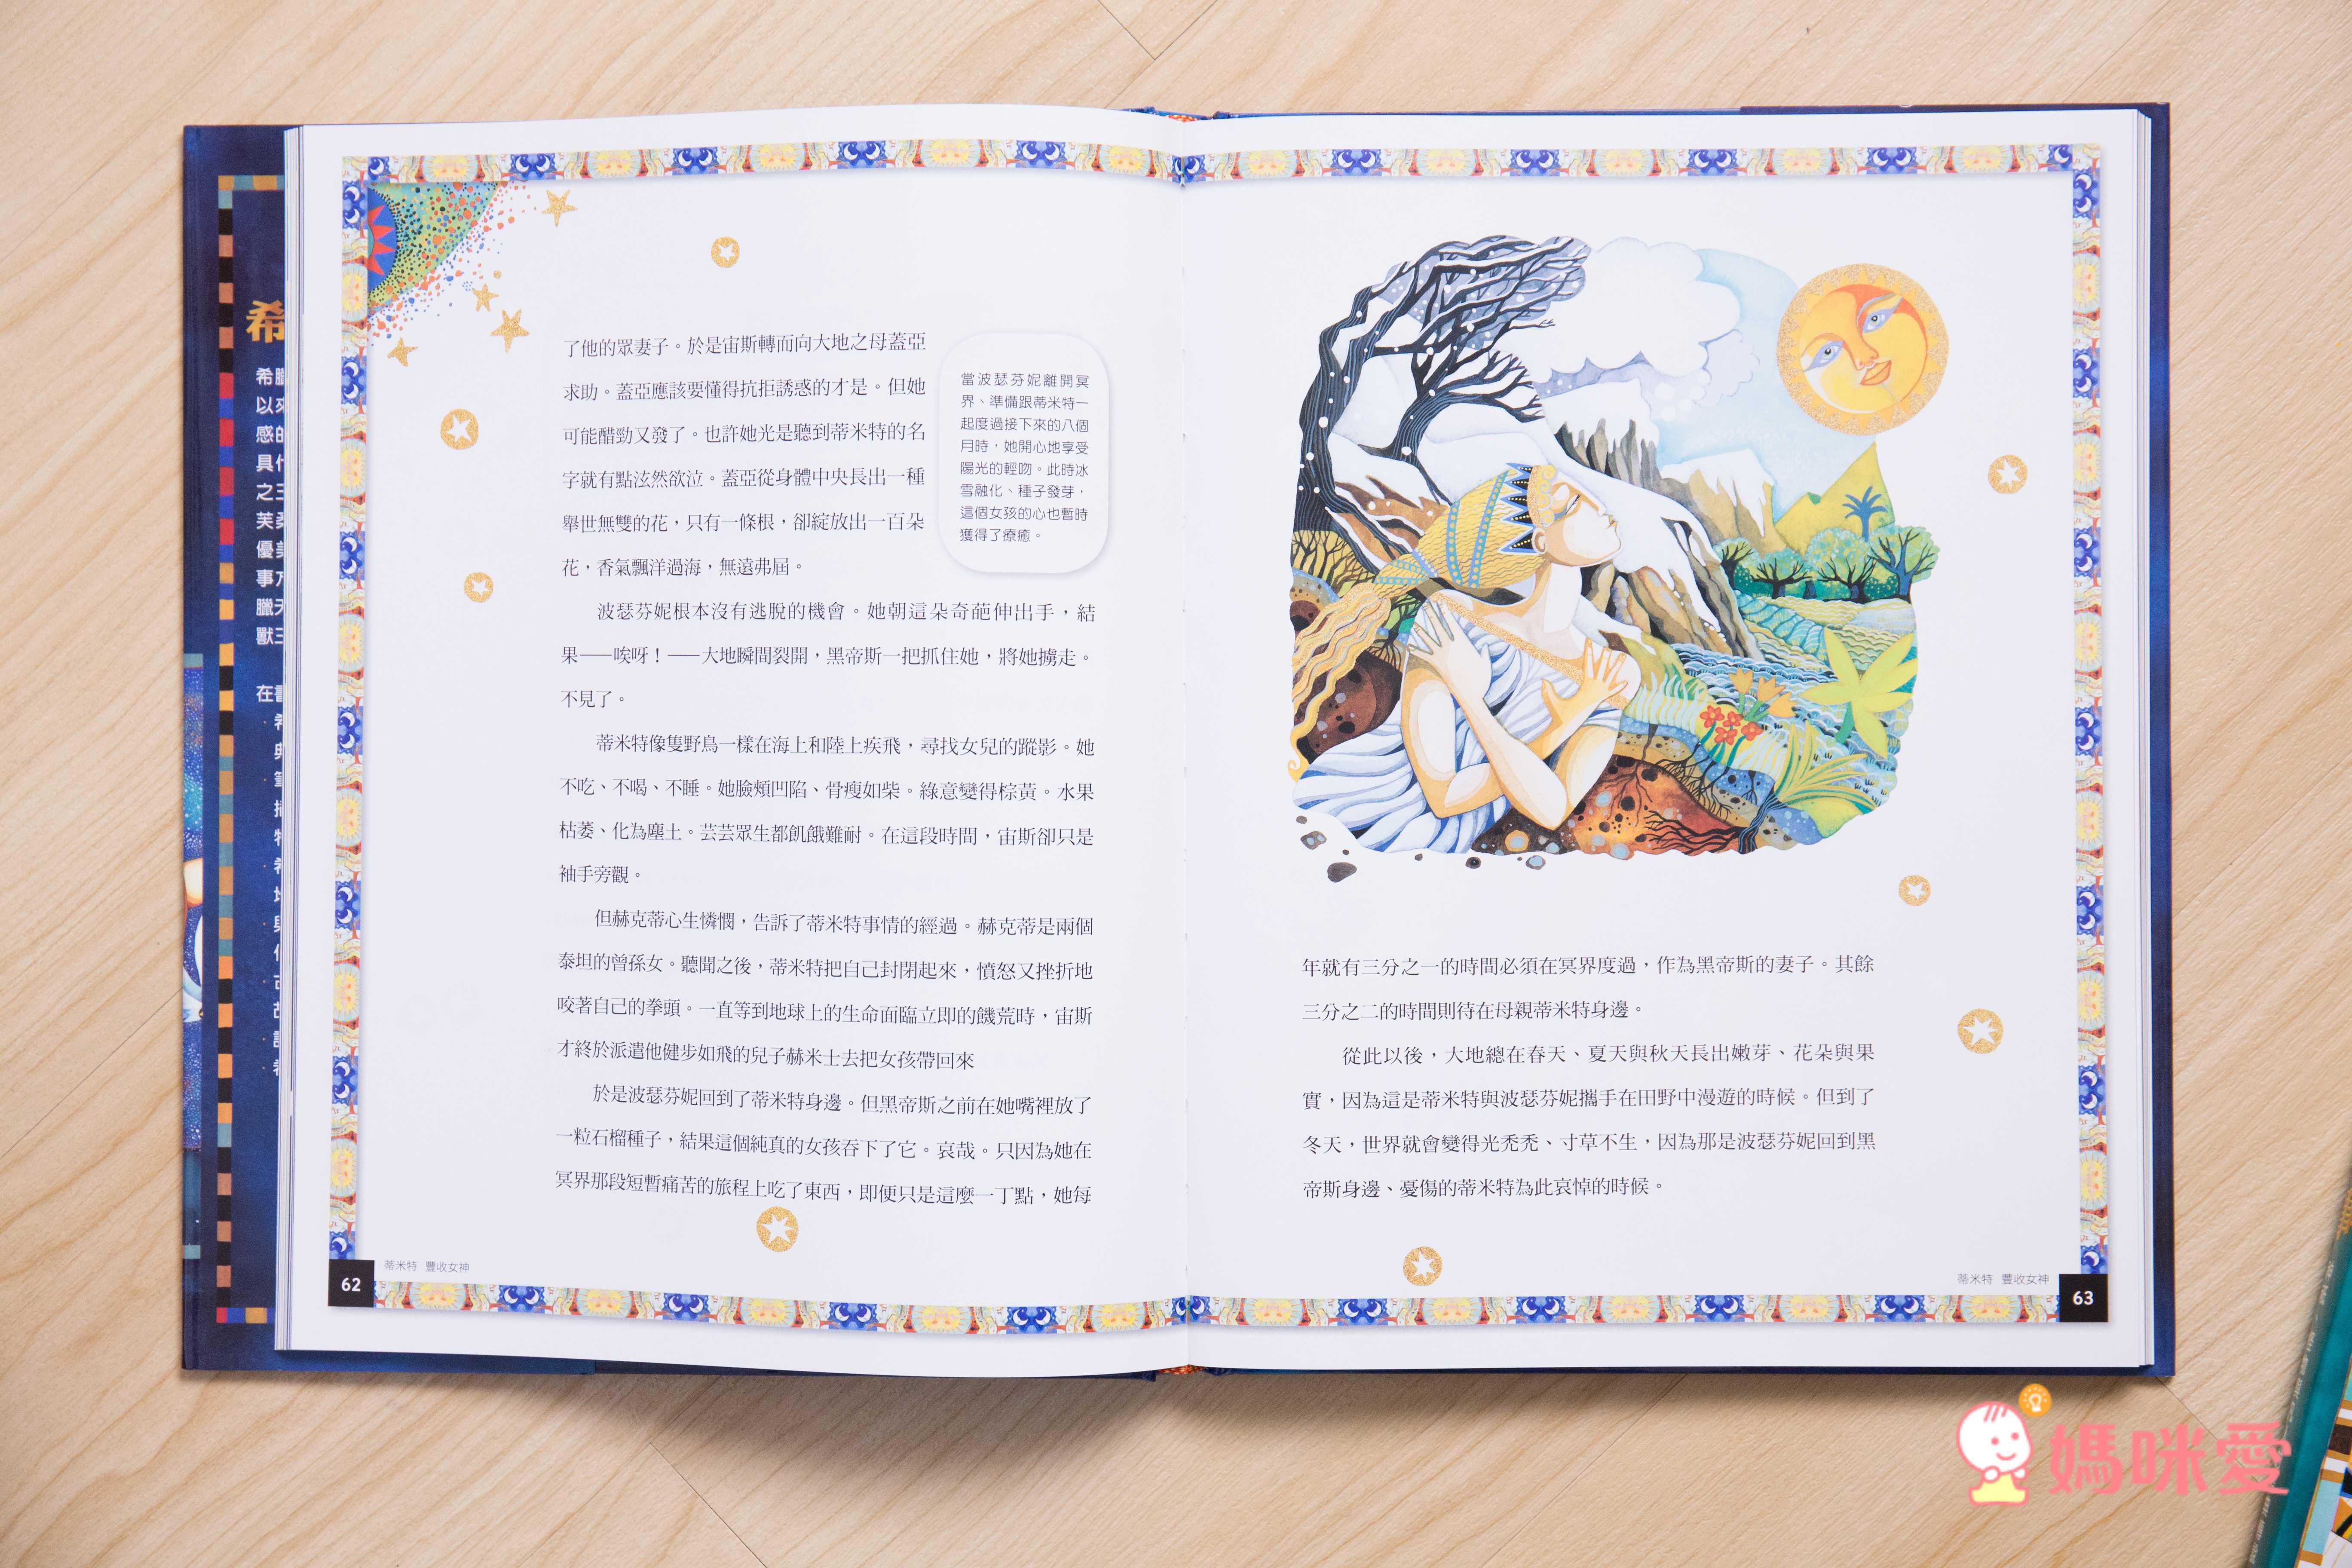 了他的眾妻子。於是宙斯轉而向大地之母蓋亞
求助。蓋亞應該要懂得抗拒誘惑的才是。但她
可能醋勁又發了。也許她光是聽到蒂米特的名
字就有點泫然欲泣。蓋亞從身體中央長出一種
舉世無雙的花，只有一條根，卻綻放出一百朵
花，香氣飄洋過海，無遠弗屆。
當波瑟芬妮離開冥
界、準備跟蒂米特一
起度過接下來的八個
月時，她開心地享受
陽光的輕吻。此時冰
雪融化、種子發芽，
這個女孩的心也暫時
獲得了療癒。
波瑟芬妮根本沒有逃脫的機會。她朝這朵奇葩伸出手，結
果——唉呀！——大地瞬間裂開，黑帝斯一把抓住她，將她擄走。
不見了。
蒂米特像隻野鳥一樣在海上和陸上疾飛，尋找女兒的蹤影。她
不吃、不喝、不睡。她臉頰凹陷、骨瘦如柴。綠意變得棕黃。水果
枯萎、化為塵土。芸芸眾生都飢餓難耐。在這段時間，宙斯卻只是
袖手旁觀。
但赫克蒂心生憐憫，告訴了蒂米特事情的經過。赫克蒂是兩個
泰坦的曾孫女。聽聞之後，蒂米特把自己封閉起來，憤怒又挫折地
咬著自己的拳頭。一直等到地球上的生命面臨立即的饑荒時，宙斯
才終於派遣他健步如飛的兒子赫米士去把女孩帶回來
於是波瑟芬妮回到了蒂米特身邊。但黑帝斯之前在她嘴裡放了
一粒石榴種子，結果這個純真的女孩吞下了它。哀哉。只因為她在
冥界那段短暫痛苦的旅程上吃了東西，即便只是這麼一丁點，她每
蒂米特 豐收女神
62
年就有三分之一的時間必須在冥界度過，作為黑帝斯的妻子。其餘
三分之二的時間則待在母親蒂米特身邊。
從此以後，大地總在春天、夏天與秋天長出嫩芽、花朵與果
實，因為這是蒂米特與波瑟芬妮攜手在田野中漫遊的時候。但到了
冬天，世界就會變得光禿禿、寸草不生，因為那是波瑟芬妮回到黑
帝斯身邊、憂傷的蒂米特為此哀悼的時候。
蒂米特 豐收女神
63
希
希臘
以來
感的
具什
之三
芙柔
優美
事
臘天
獸三
在
媽咪愛